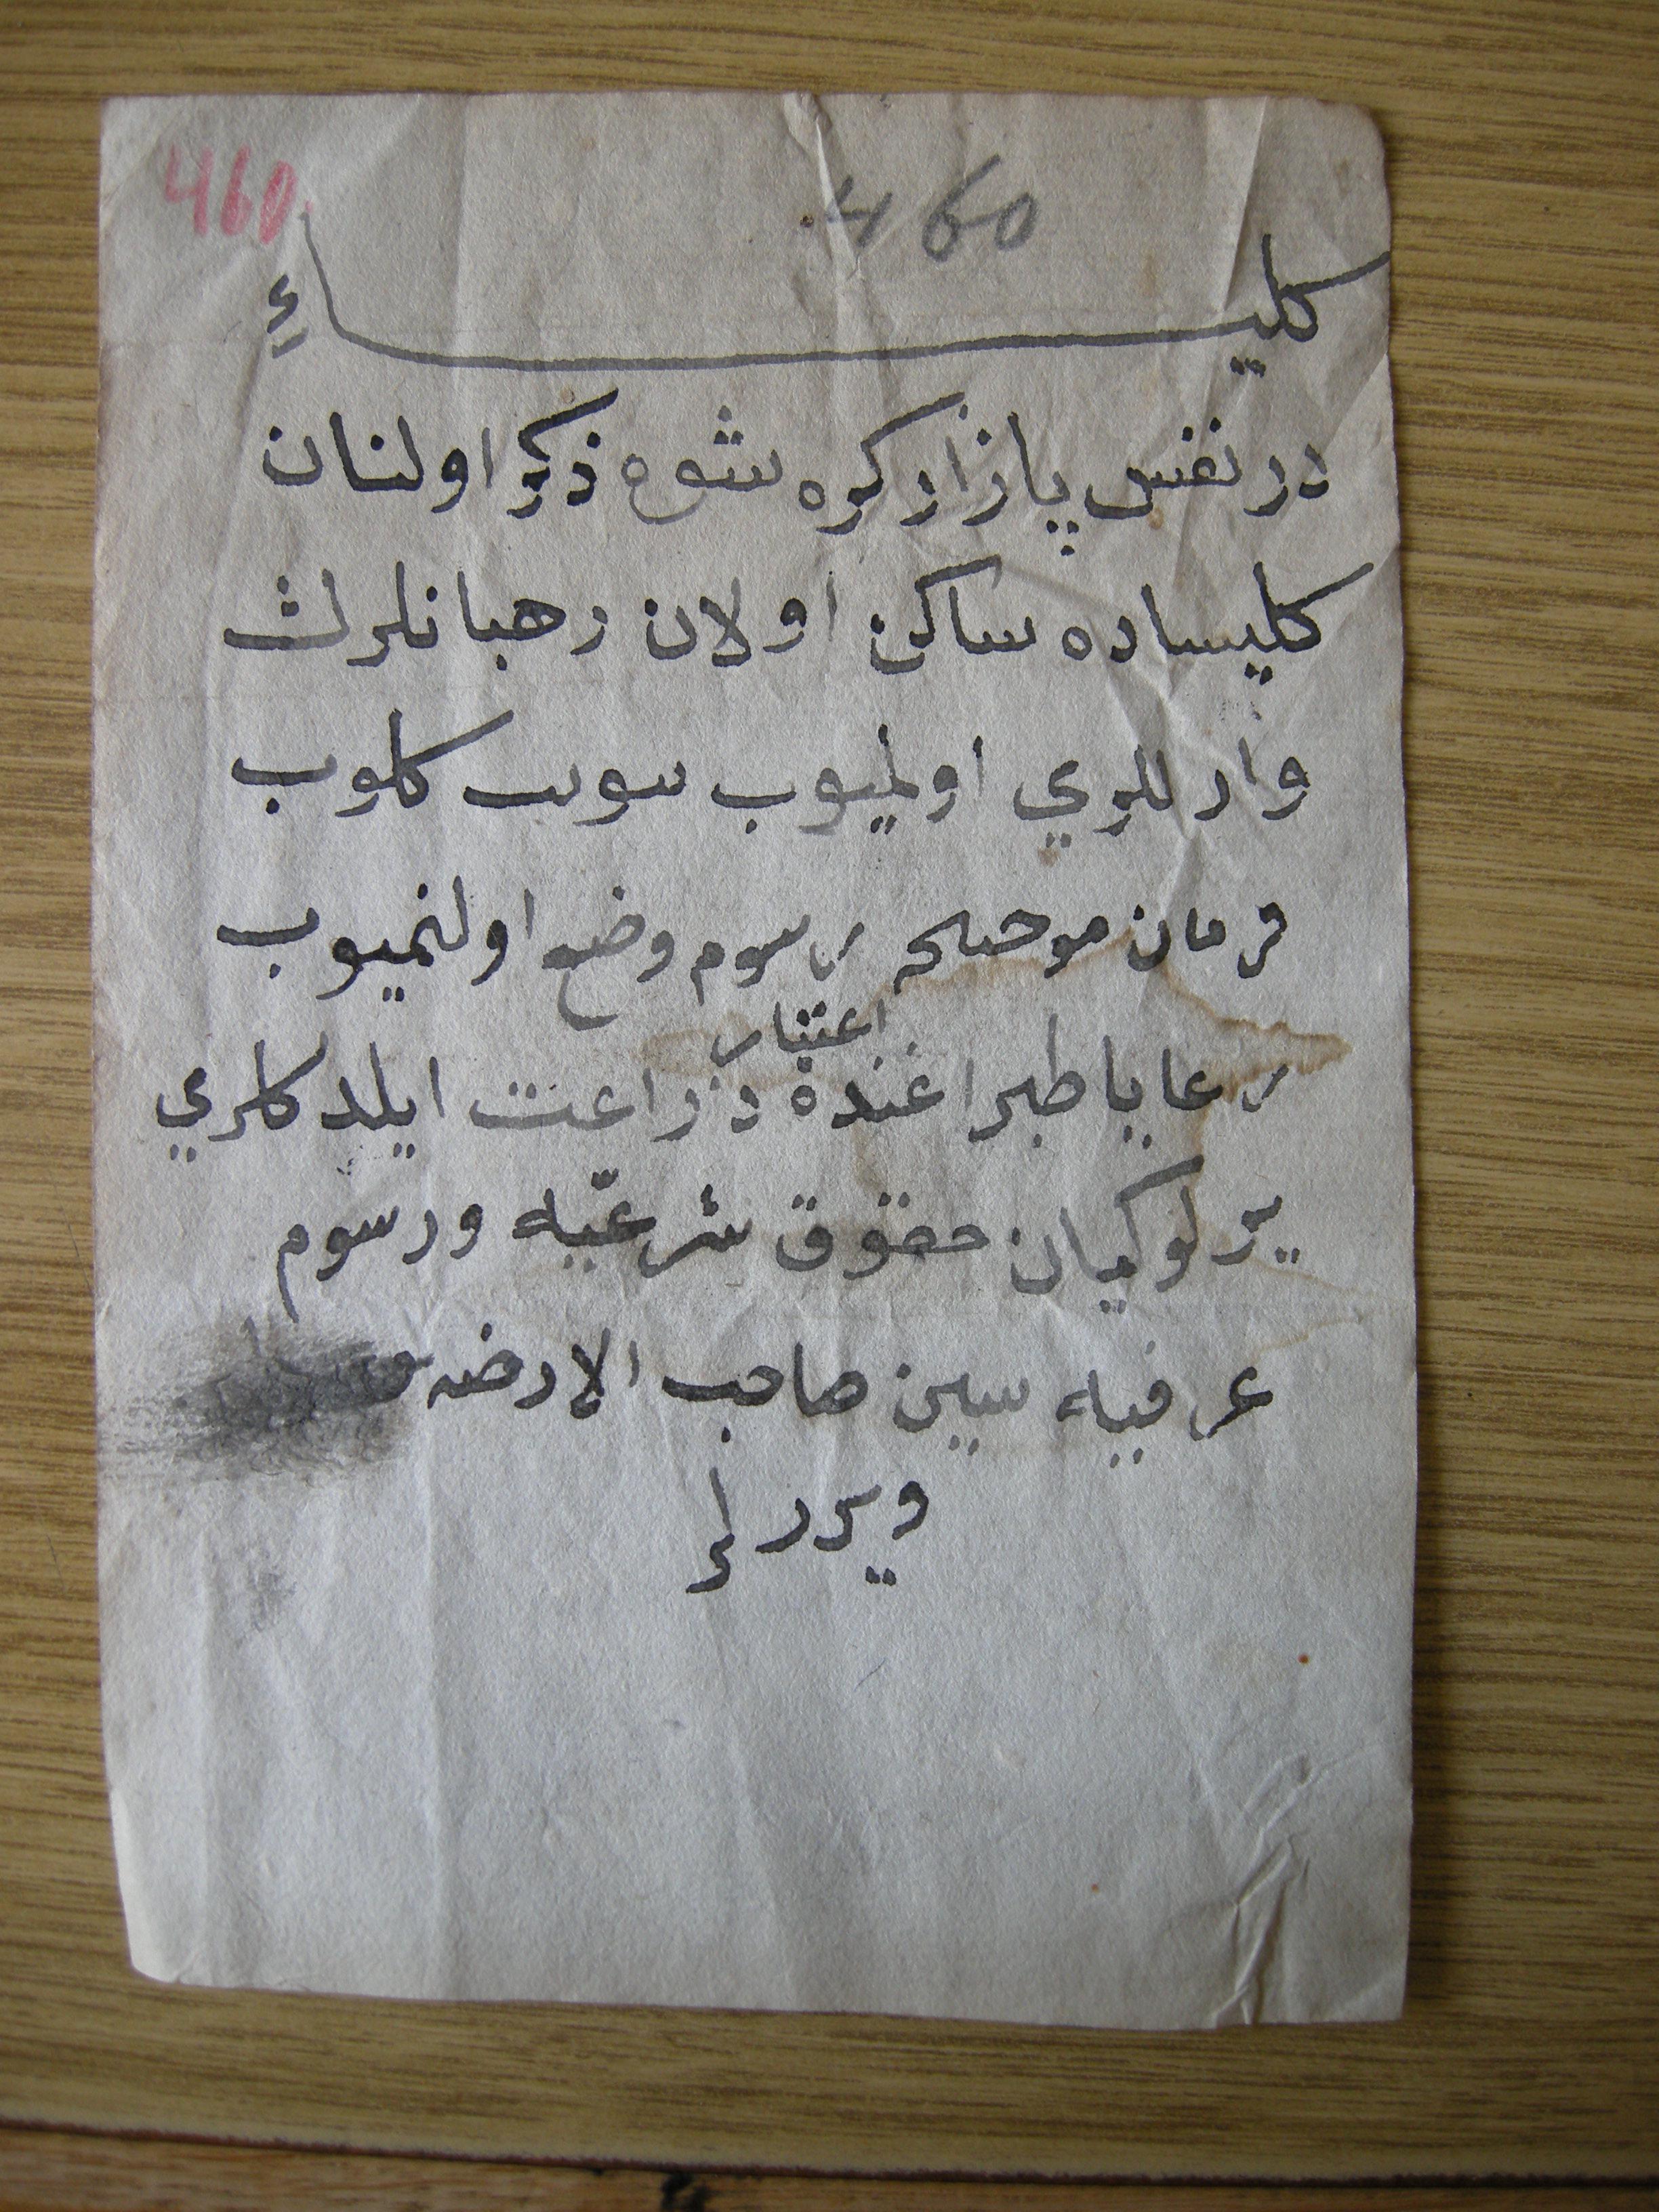 460 460
كليساءِ
در نفس پازار كره شوه ذكر اولنان
كليساده ساكن اولان رهبانلرڭ
واردللري اولميوب كلوب
فرمان رسوم وضع اولنميوب
اعتبار
رعايا طپراغنده زراعت ايلدكلري
يرلو كيان حقوق شرعيّه ورسوم
عرفيه سين صاحب الارضه
ويررلر